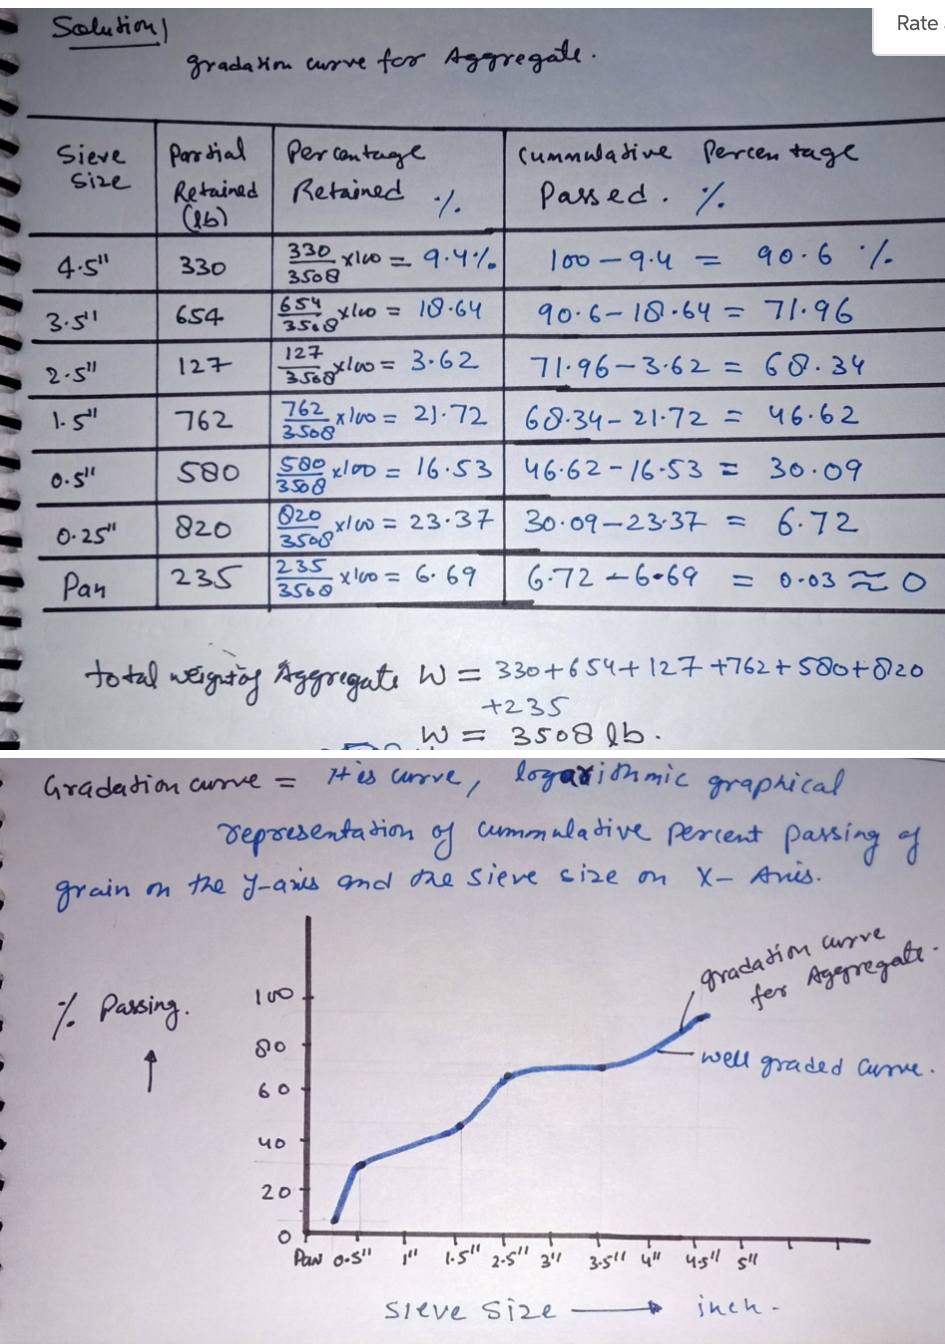 Rate
Solution)
gradation curve for Aggregate.
Sieve Size | Partial Retained (lb) | Percentage Retained % | Cummulative Percentage Passed. %
4.5" | 330 | 330/3508 x100 = 9.4% | 100 - 9.4 = 90.6 %
3.5" | 654 | 654/3508 x100 = 18.64 | 90.6 - 18.64 = 71.96
2.5" | 127 | 127/3508 x100 = 3.62 | 71.96 - 3.62 = 68.34
1.5" | 762 | 762/3508 x100 = 21.72 | 68.34 - 21.72 = 46.62
0.5" | 580 | 580/3508 x100 = 16.53 | 46.62 - 16.53 = 30.09
0.25" | 820 | 820/3508 x100 = 23.37 | 30.09 - 23.37 = 6.72
Pan | 235 | 235/3508 x100 = 6.69 | 6.72 - 6.69 = 0.03 ≈ 0
total weight of Aggregate W = 330+654+127+762+580+820
+235
W = 3508 lb.
Gradation curve = It is curve, logarithmic graphical
representation of cummulative percent passing of
grain on the y-axis and the sieve size on X- Axis.
gradation curve
for Aggregate.
% Passing.
well graded curve.
100
80
60
40
20
0
Pan 0.5" 1" 1.5" 2.5" 3" 3.5" 4" 4.5" 5"
Sieve size → inch.